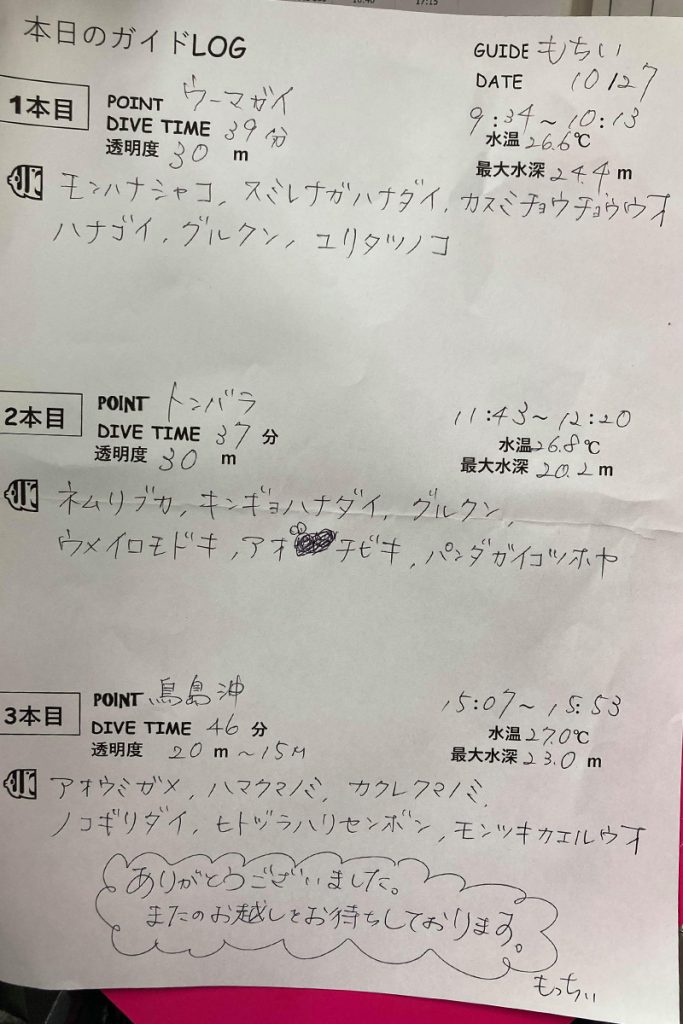 17:15
本日のガイドLOG
GUIDE もちい
DATE 10/27
1本目
POINT ウーマガイ
9:34～10:13
DIVE TIME 39分
水温26.6℃
透明度 30 m
最大水深24.4 m
モンハナシャコ, スミレナガハナダイ, カスミチョウチョウウオ
ハナゴイ, グルクン, ユリタツノコ
2本目
POINT トンバラ
11:43～12:20
DIVE TIME 37 分
水温26.8℃
透明度 30 m
最大水深 20.2 m
ネムリブカ, キンギョハナダイ, グルクン,
ウメイロモドキ, アオチビキ, パンダガイコツホヤ
3本目
POINT 鳥島沖
15:07～15:53
DIVE TIME 46 分
水温27.0℃
透明度 20 m ～15M
最大水深23.0 m
アオウミガメ, ハマクマノミ, カクレクマノミ,
ノコギリダイ, ヒトヅラハリセンボン, モンツキカエルウオ
ありがとうございました。
またのお越しをお待ちしております。
もっちぃ